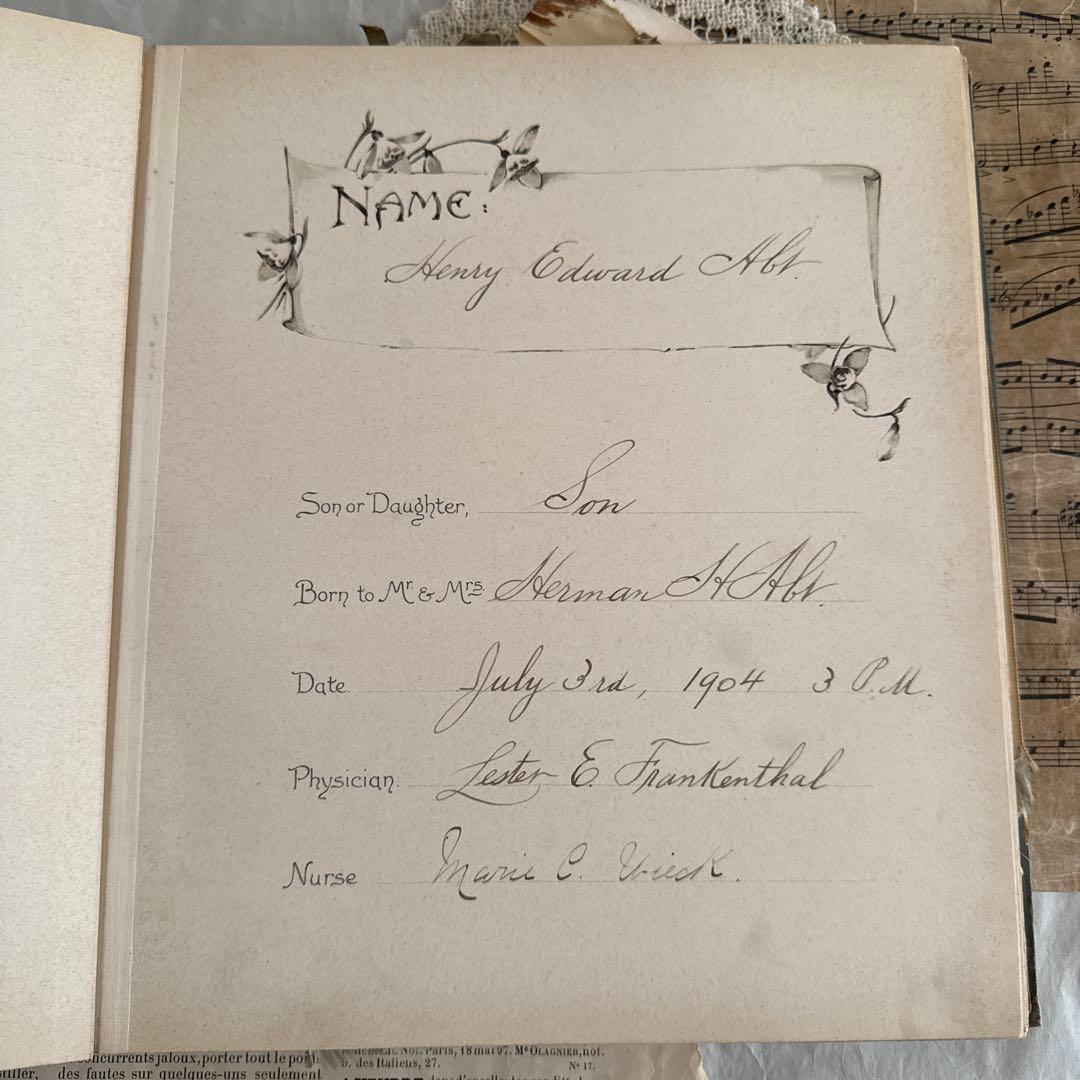 NAME:
Henry Edward Abt.
Son or Daughter, Son
Born to Mr. & Mrs. Herman H Abt.
Date July 3rd, 1904 3 P.M.
Physician. Lester E. Frankenthal
Nurse Marie C. Wieck.
concurrents jaloux, porter tout le
des fautes sur quelques-uns seulement
Not. Paris, 18 mai 97. Me OLAGNIER, not.
b. des Italiens, 27.
No 17.